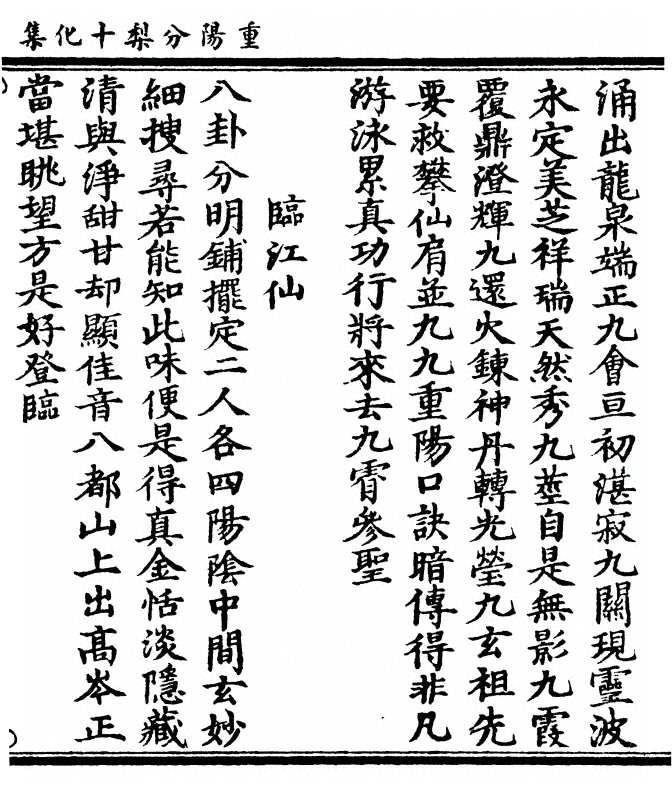 重陽分梨十化集
涌出龍泉端正九會亘初湛寂九關現靈波
永定美芝祥瑞天然秀九莖自是無影九霞
覆鼎澄輝九還火鍊神丹轉光瑩九玄祖先
要救攀仙肩並九九重陽口訣暗傳得非凡
游泳累真功行將來去九霄參聖
臨江仙
八卦分明鋪擺定二人各四陽陰中間玄妙
細搜尋若能知此味便是得真金恬淡隱藏
清與淨甜甘却顯佳音八都山上出高岑正
當堪眺望方是好登臨